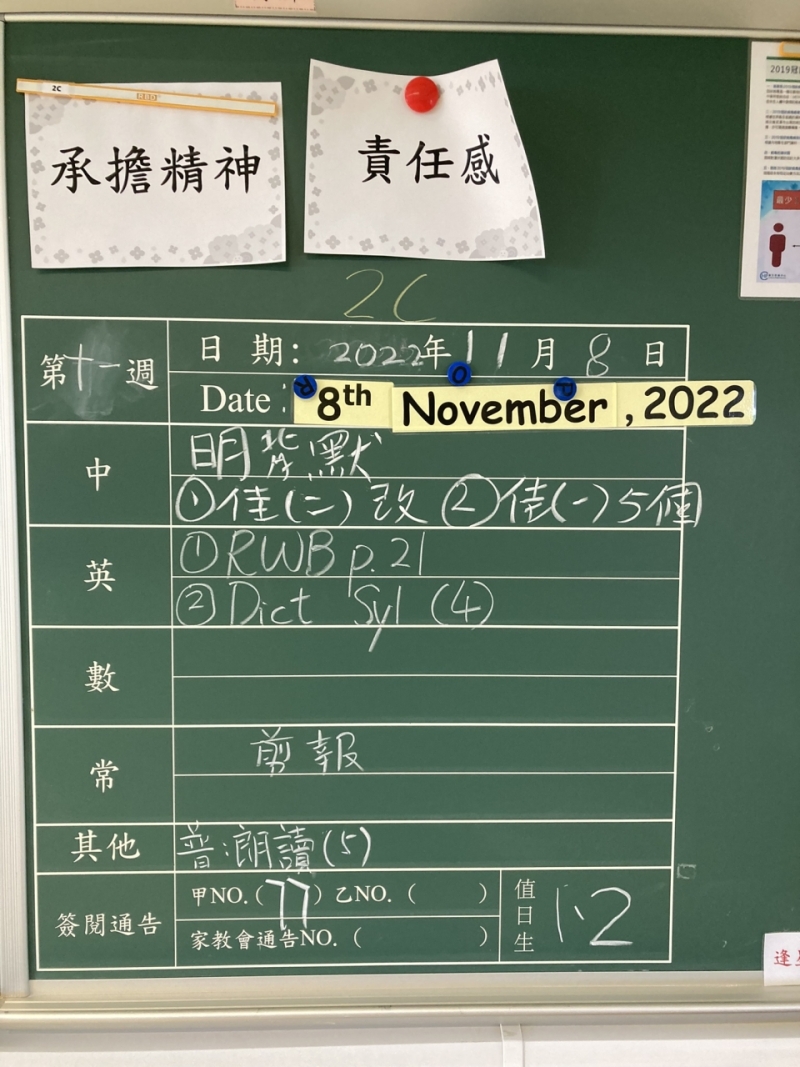 2C
承擔精神
責任感
2019冠
最少
2C
第十一週
日期: 2022年11月8日
Date: 8th November, 2022
中
明背默
①佳(二)改 ②佳(一)5個
英
①RWB p.21
②Dict Syl (4)
數
常
剪報
其他
普:朗讀(5)
簽閱通告
甲NO.(77) 乙NO.( )
家教會通告NO.( )
值日生
1、2
逢